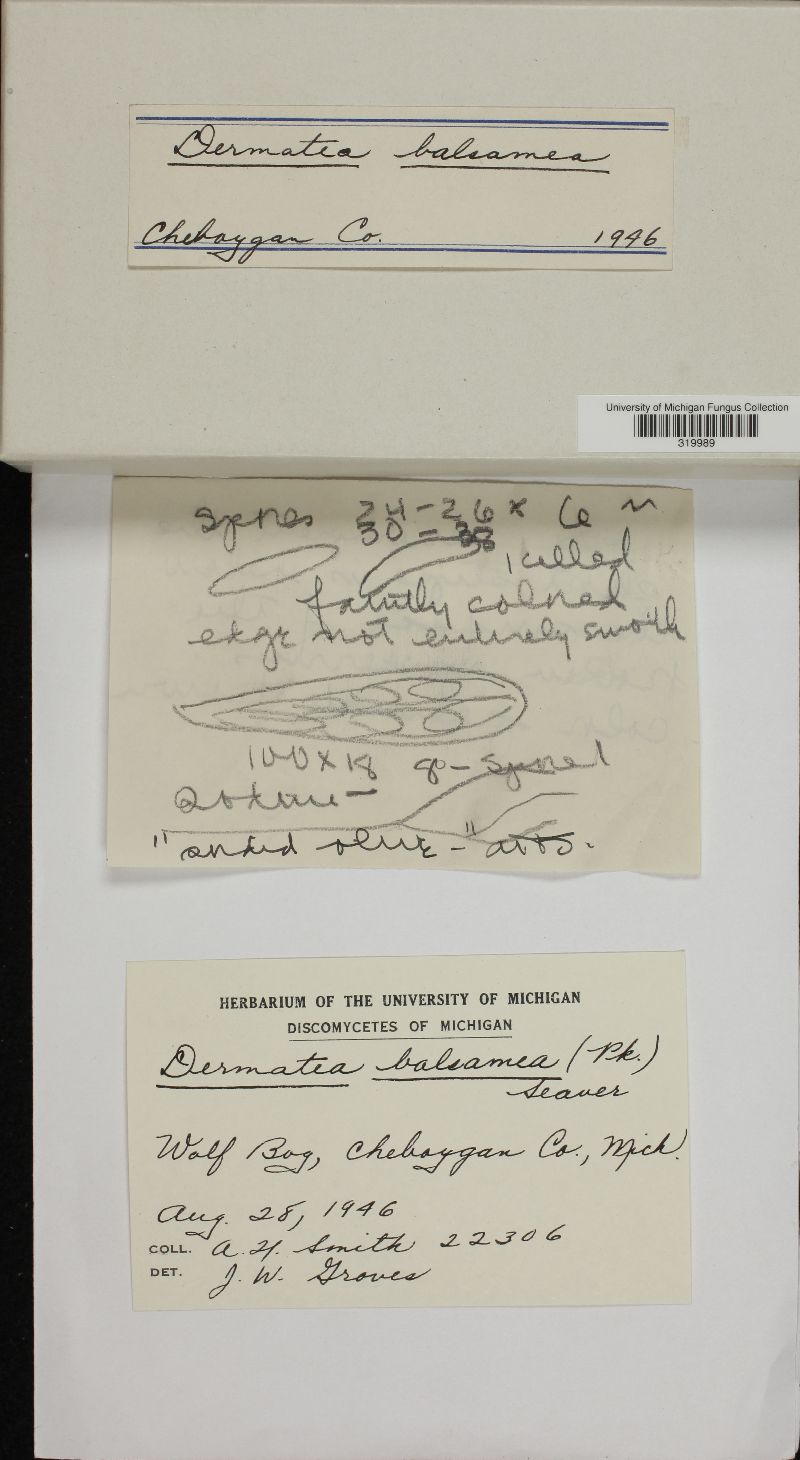 Dermatea balsamea
Cheboygan Co. 1946
University of Michigan Fungus Collection
319989
spores 24-26 x 6 ~
30 - 38
1 celled
faintly colored
edge not entirely smooth
100 x 18 8-spored
"
olive - "
HERBARIUM OF THE UNIVERSITY OF MICHIGAN
DISCOMYCETES OF MICHIGAN
Dermatea balsamea (Pk.)
Seaver
Wolf Bog, Cheboygan Co., Mich.
Aug. 28, 1946
COLL. A. H. Smith 22306
DET. J. W. Groves